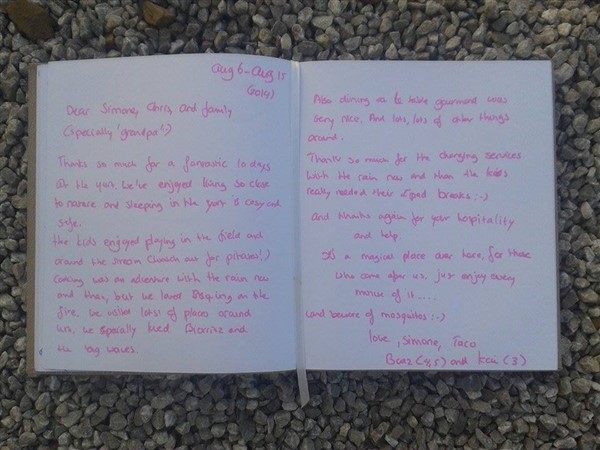 Aug 6 - Aug 15
(2014)
Dear Simone, Chris, and family
(Specially 'grandpa' :-)
Thanks so much for a fantastic 10 days
at the yurt. We've enjoyed living so close
to nature and sleeping in the yurt is cosy and
safe.
The kids enjoyed playing in the field and
around the stream (watch out for pirates!;)
Cooking was an adventure with the rain now
and than, but we loved on the
fire. We visited lots! of places around
here, we specially liked Biarritz and
the big waves.
Also dining at te table gourmand was
very nice. And lots, lots of other things
around.
Thanks so much for the charging services
with the rain now and than the kids
really needed their Ipad breaks :-)
and thanks again for your hospitality
and help.
It's a magical place over here, for those
who come after us, just enjoy every
minute of it .....
(and beware of mosquitos :-)
love, Simone, Taco
(4,5) and Kai (3)